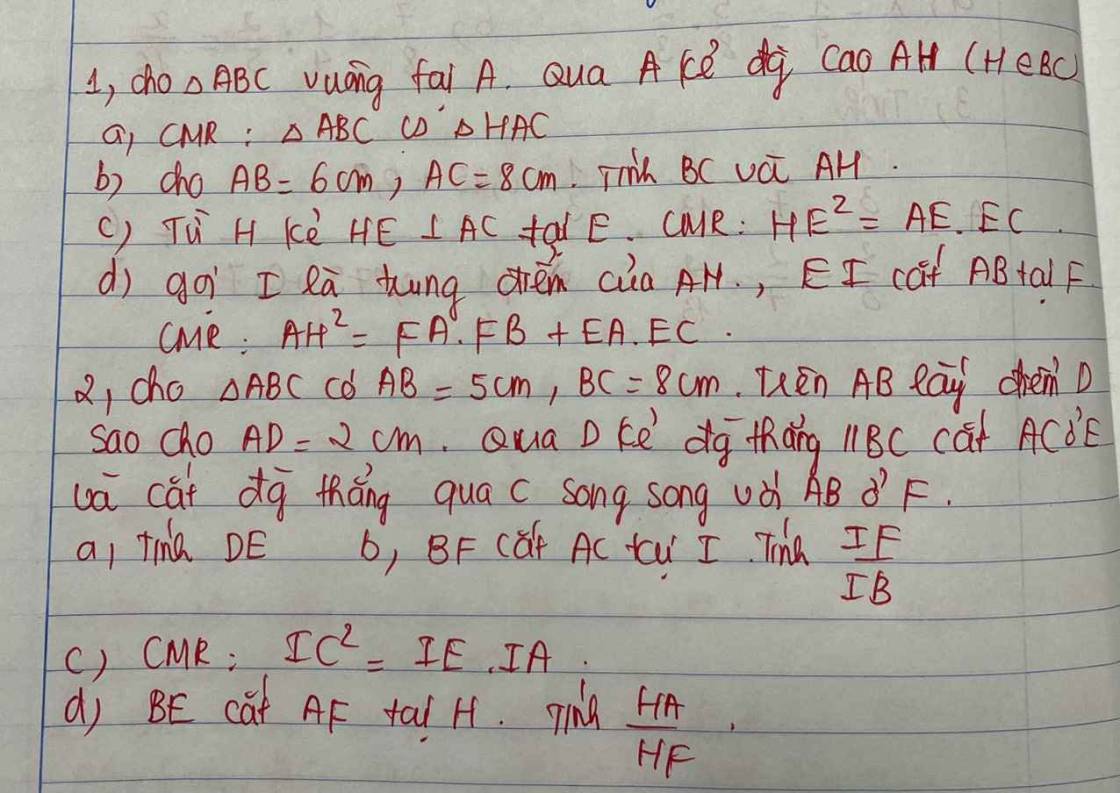 1, cho △ABC vuông tại A. Qua A kẻ đg̀ cao AH (H∈BC)
a, CMR : △ABC ∽ △HAC
b) cho AB = 6cm, AC = 8cm. Tính BC và AH .
c) Từ H kẻ HE ⊥ AC tại E. CMR: HE² = AE. EC .
d) gọi I là trung điểm của AH. , EI cắt AB tại F
CMR : AH² = FA.FB + EA.EC .
2, cho △ABC có AB = 5cm, BC = 8cm. Trên AB lấy điểm D
sao cho AD = 2cm. Qua D kẻ đg̀ thẳng // BC cắt AC ở E
và cắt đg̀ thẳng qua C song song với AB ở F.
a, Tính DE b, BF cắt AC tại I . Tính IF/IB
c) CMR : IC² = IE .IA .
d) BE cắt AF tại H . Tính HA/HF .